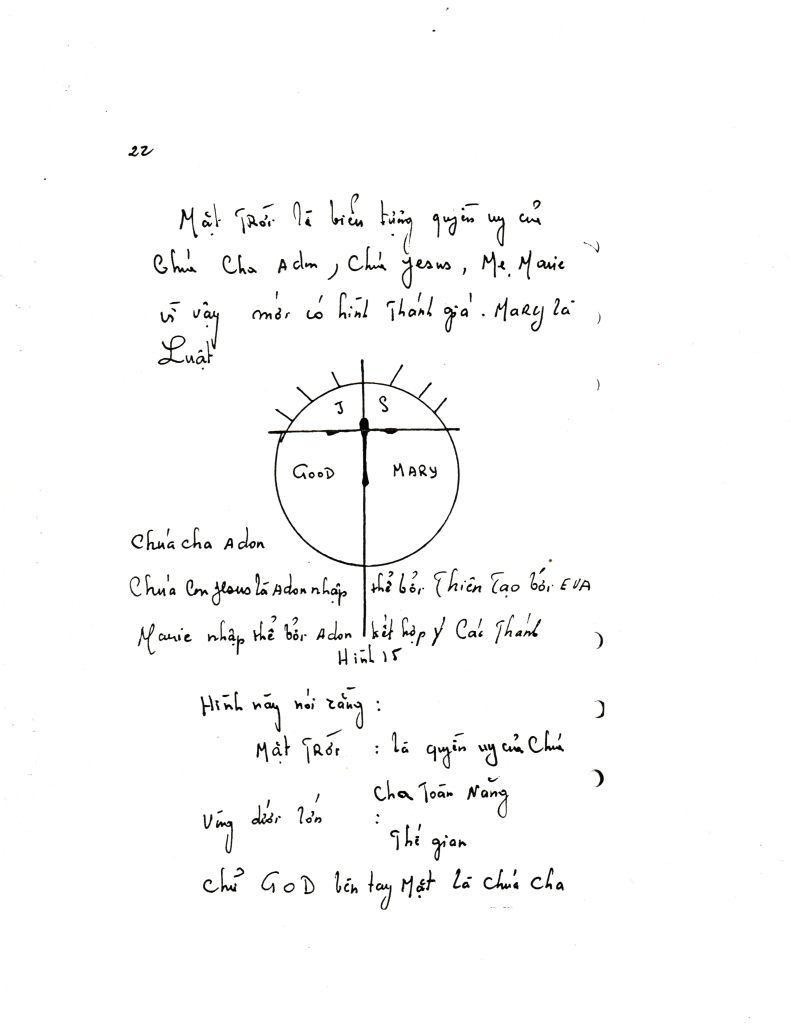 22
Mặt Trời là biểu tượng quyền uy của
Chúa Cha Adon, Chúa Jesus, Mẹ Marie
vì vậy mới có hình Thánh giá. MARY là
Luật
J S
GOOD MARY
Chúa cha Adon
Chúa Con Jesus là Adon nhập thể bởi Thiên Tạo bởi EVA
Marie nhập thể bởi Adon kết hợp ý Các Thánh
Hình 15
Hình này nói rằng :
Mặt Trời : là quyền uy của Chúa
Cha Toàn Năng
Vùng dưới lớn :
Thế gian
chữ GOD bên tay Mặt là Chúa Cha